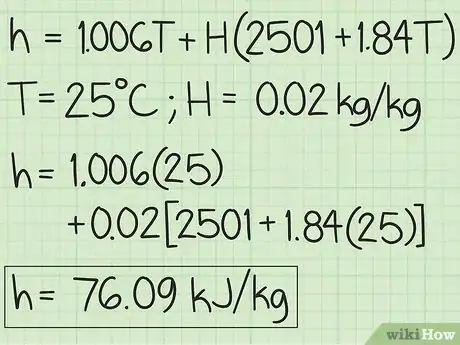 h = 1.006T + H(2501 + 1.84T)
T = 25°C ; H = 0.02 kg/kg
h = 1.006(25)
+0.02[2501 + 1.84(25)]
h = 76.09 kJ/kg
wikiHow